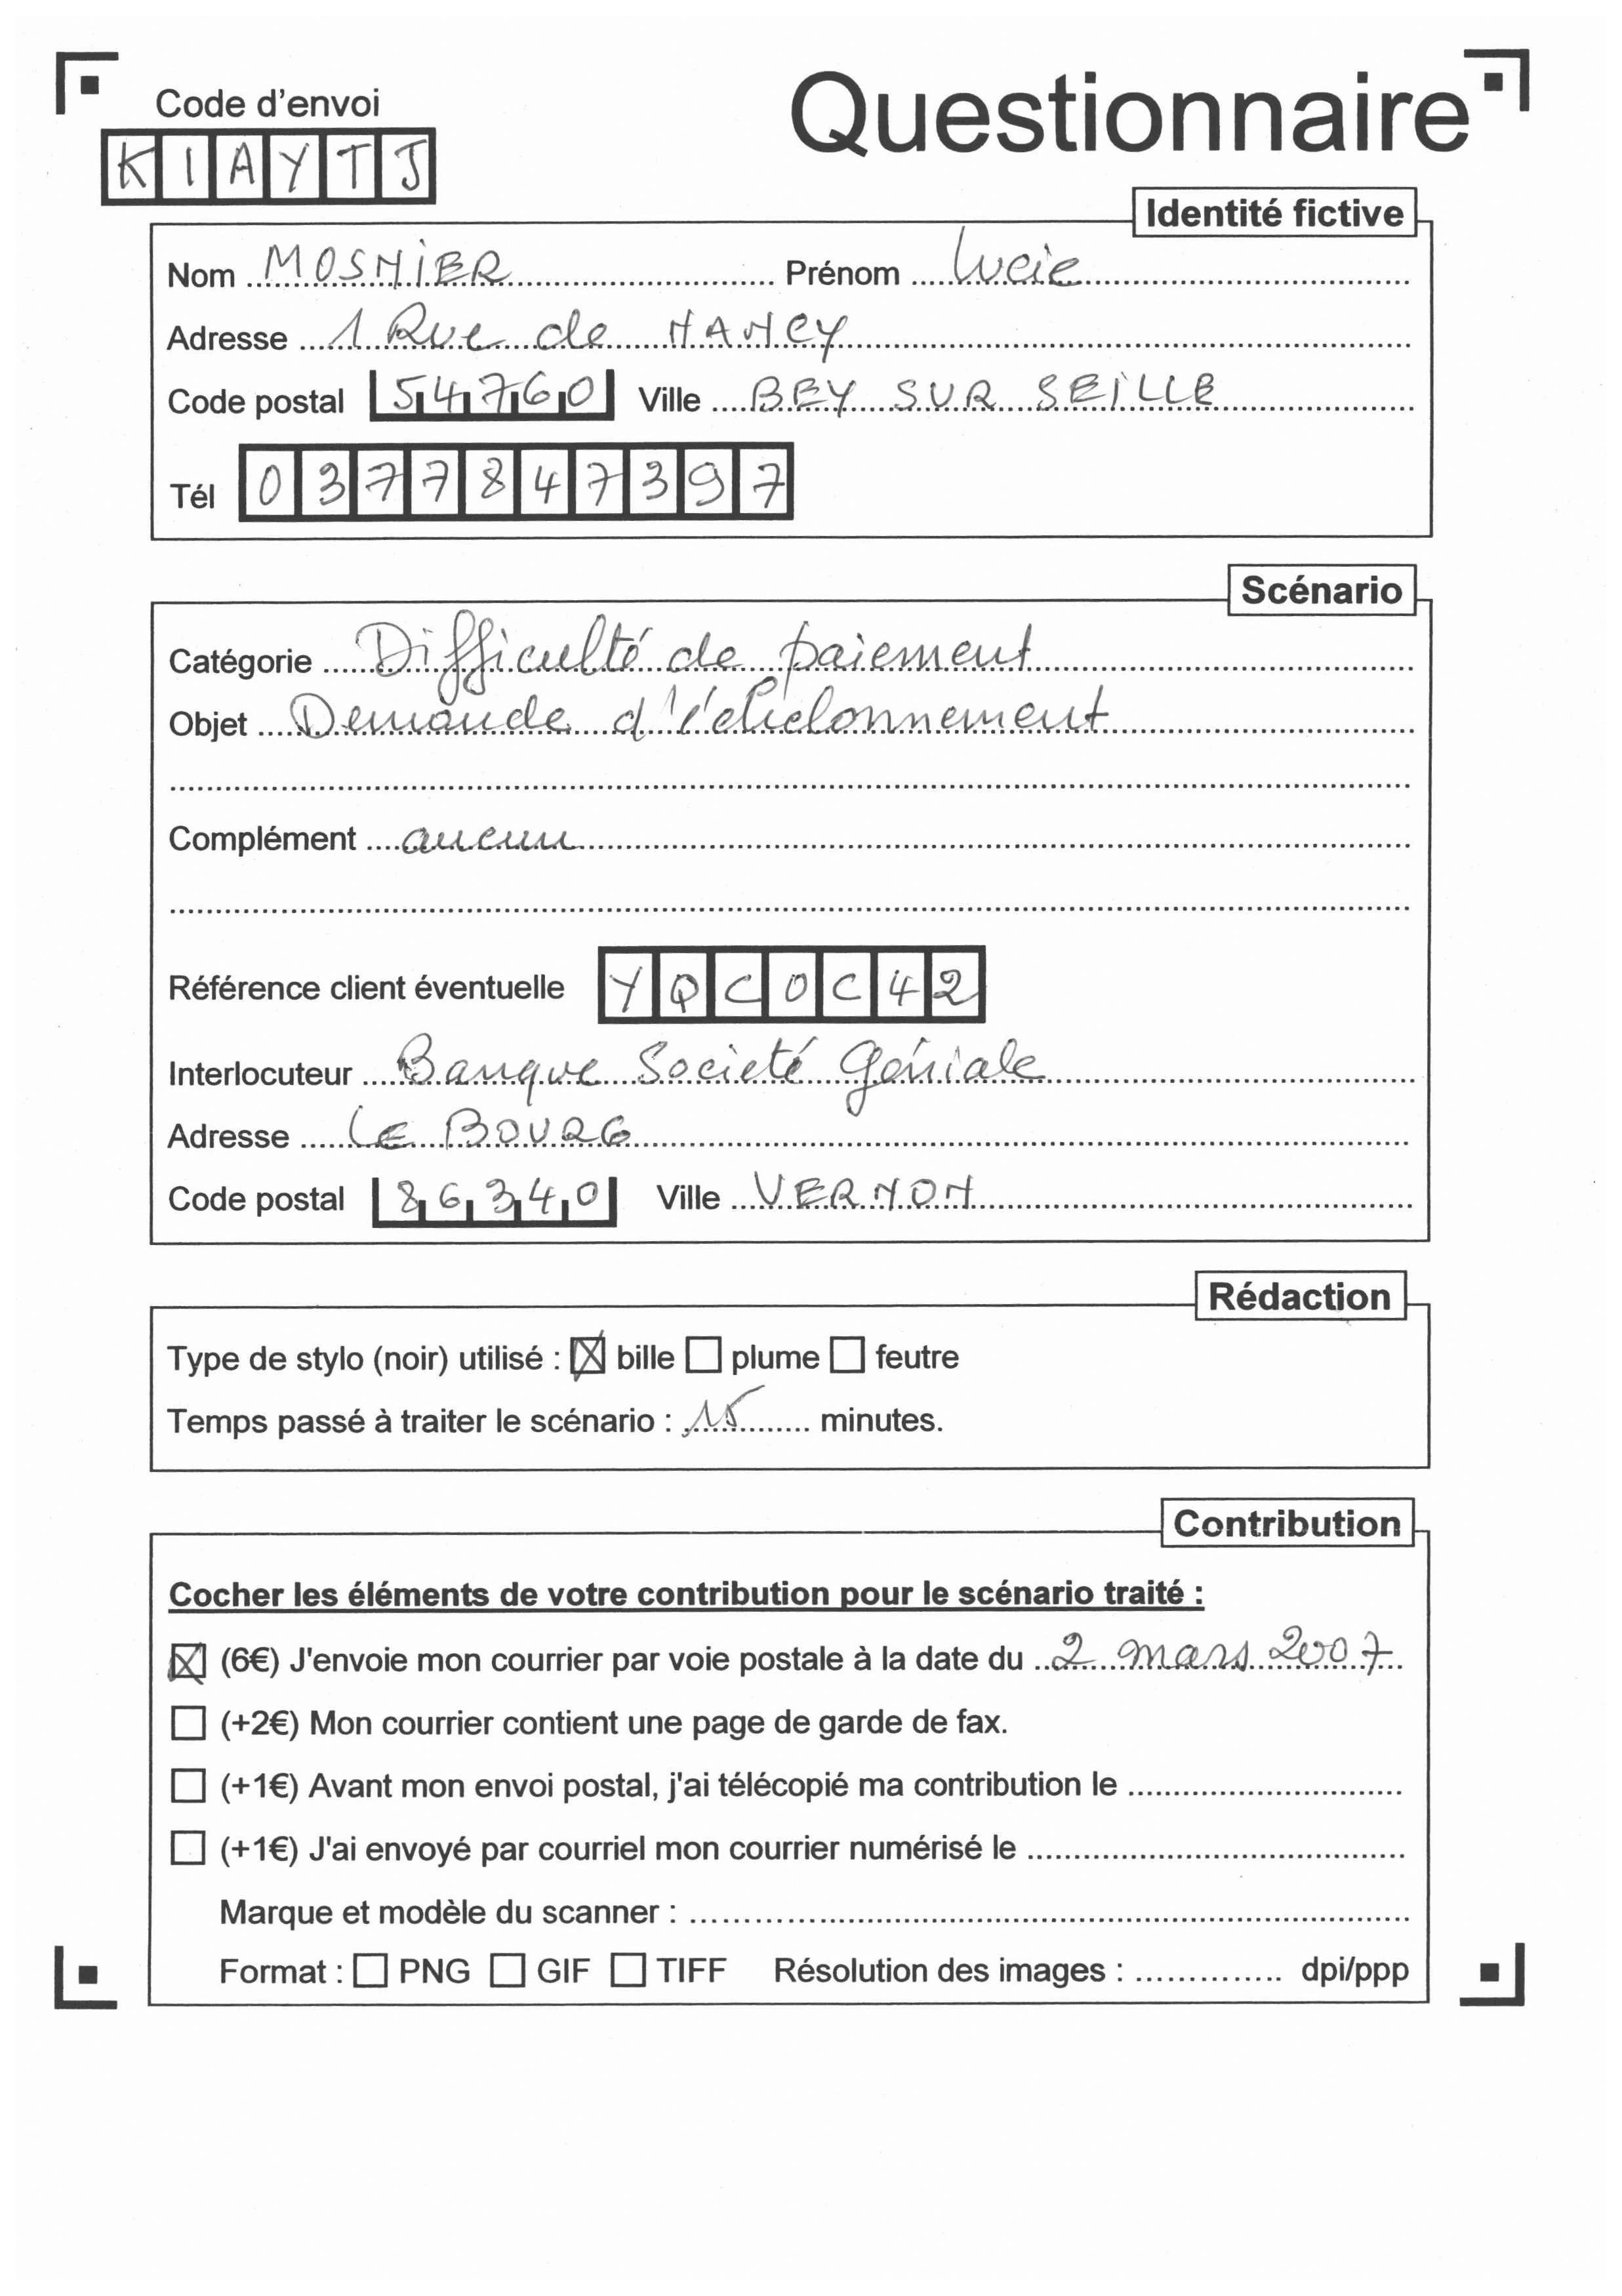 Code d'envoi
Questionnaire
KIAYTJ
Identité fictive
Nom MOSNIER Prénom Lucie
Adresse 1 Rue de NANCY
Code postal 54760 Ville BEY SUR SEILLE
Tél 0377847397
Scénario
Catégorie Difficulté de paiement
Objet Demande d'échelonnement
Complément aucun
Référence client éventuelle YQCOC42
Interlocuteur Banque Societé Géniale
Adresse LE BOURG
Code postal 86340 Ville VERNON
Rédaction
Type de stylo (noir) utilisé : ☒ bille ☐ plume ☐ feutre
Temps passé à traiter le scénario : 15 minutes.
Contribution
Cocher les éléments de votre contribution pour le scénario traité :
☒ (6€) J'envoie mon courrier par voie postale à la date du 2 mars 2007
☐ (+2€) Mon courrier contient une page de garde de fax.
☐ (+1€) Avant mon envoi postal, j'ai télécopié ma contribution le
☐ (+1€) J'ai envoyé par courriel mon courrier numérisé le
Marque et modèle du scanner :
Format : ☐ PNG ☐ GIF ☐ TIFF Résolution des images : dpi/ppp